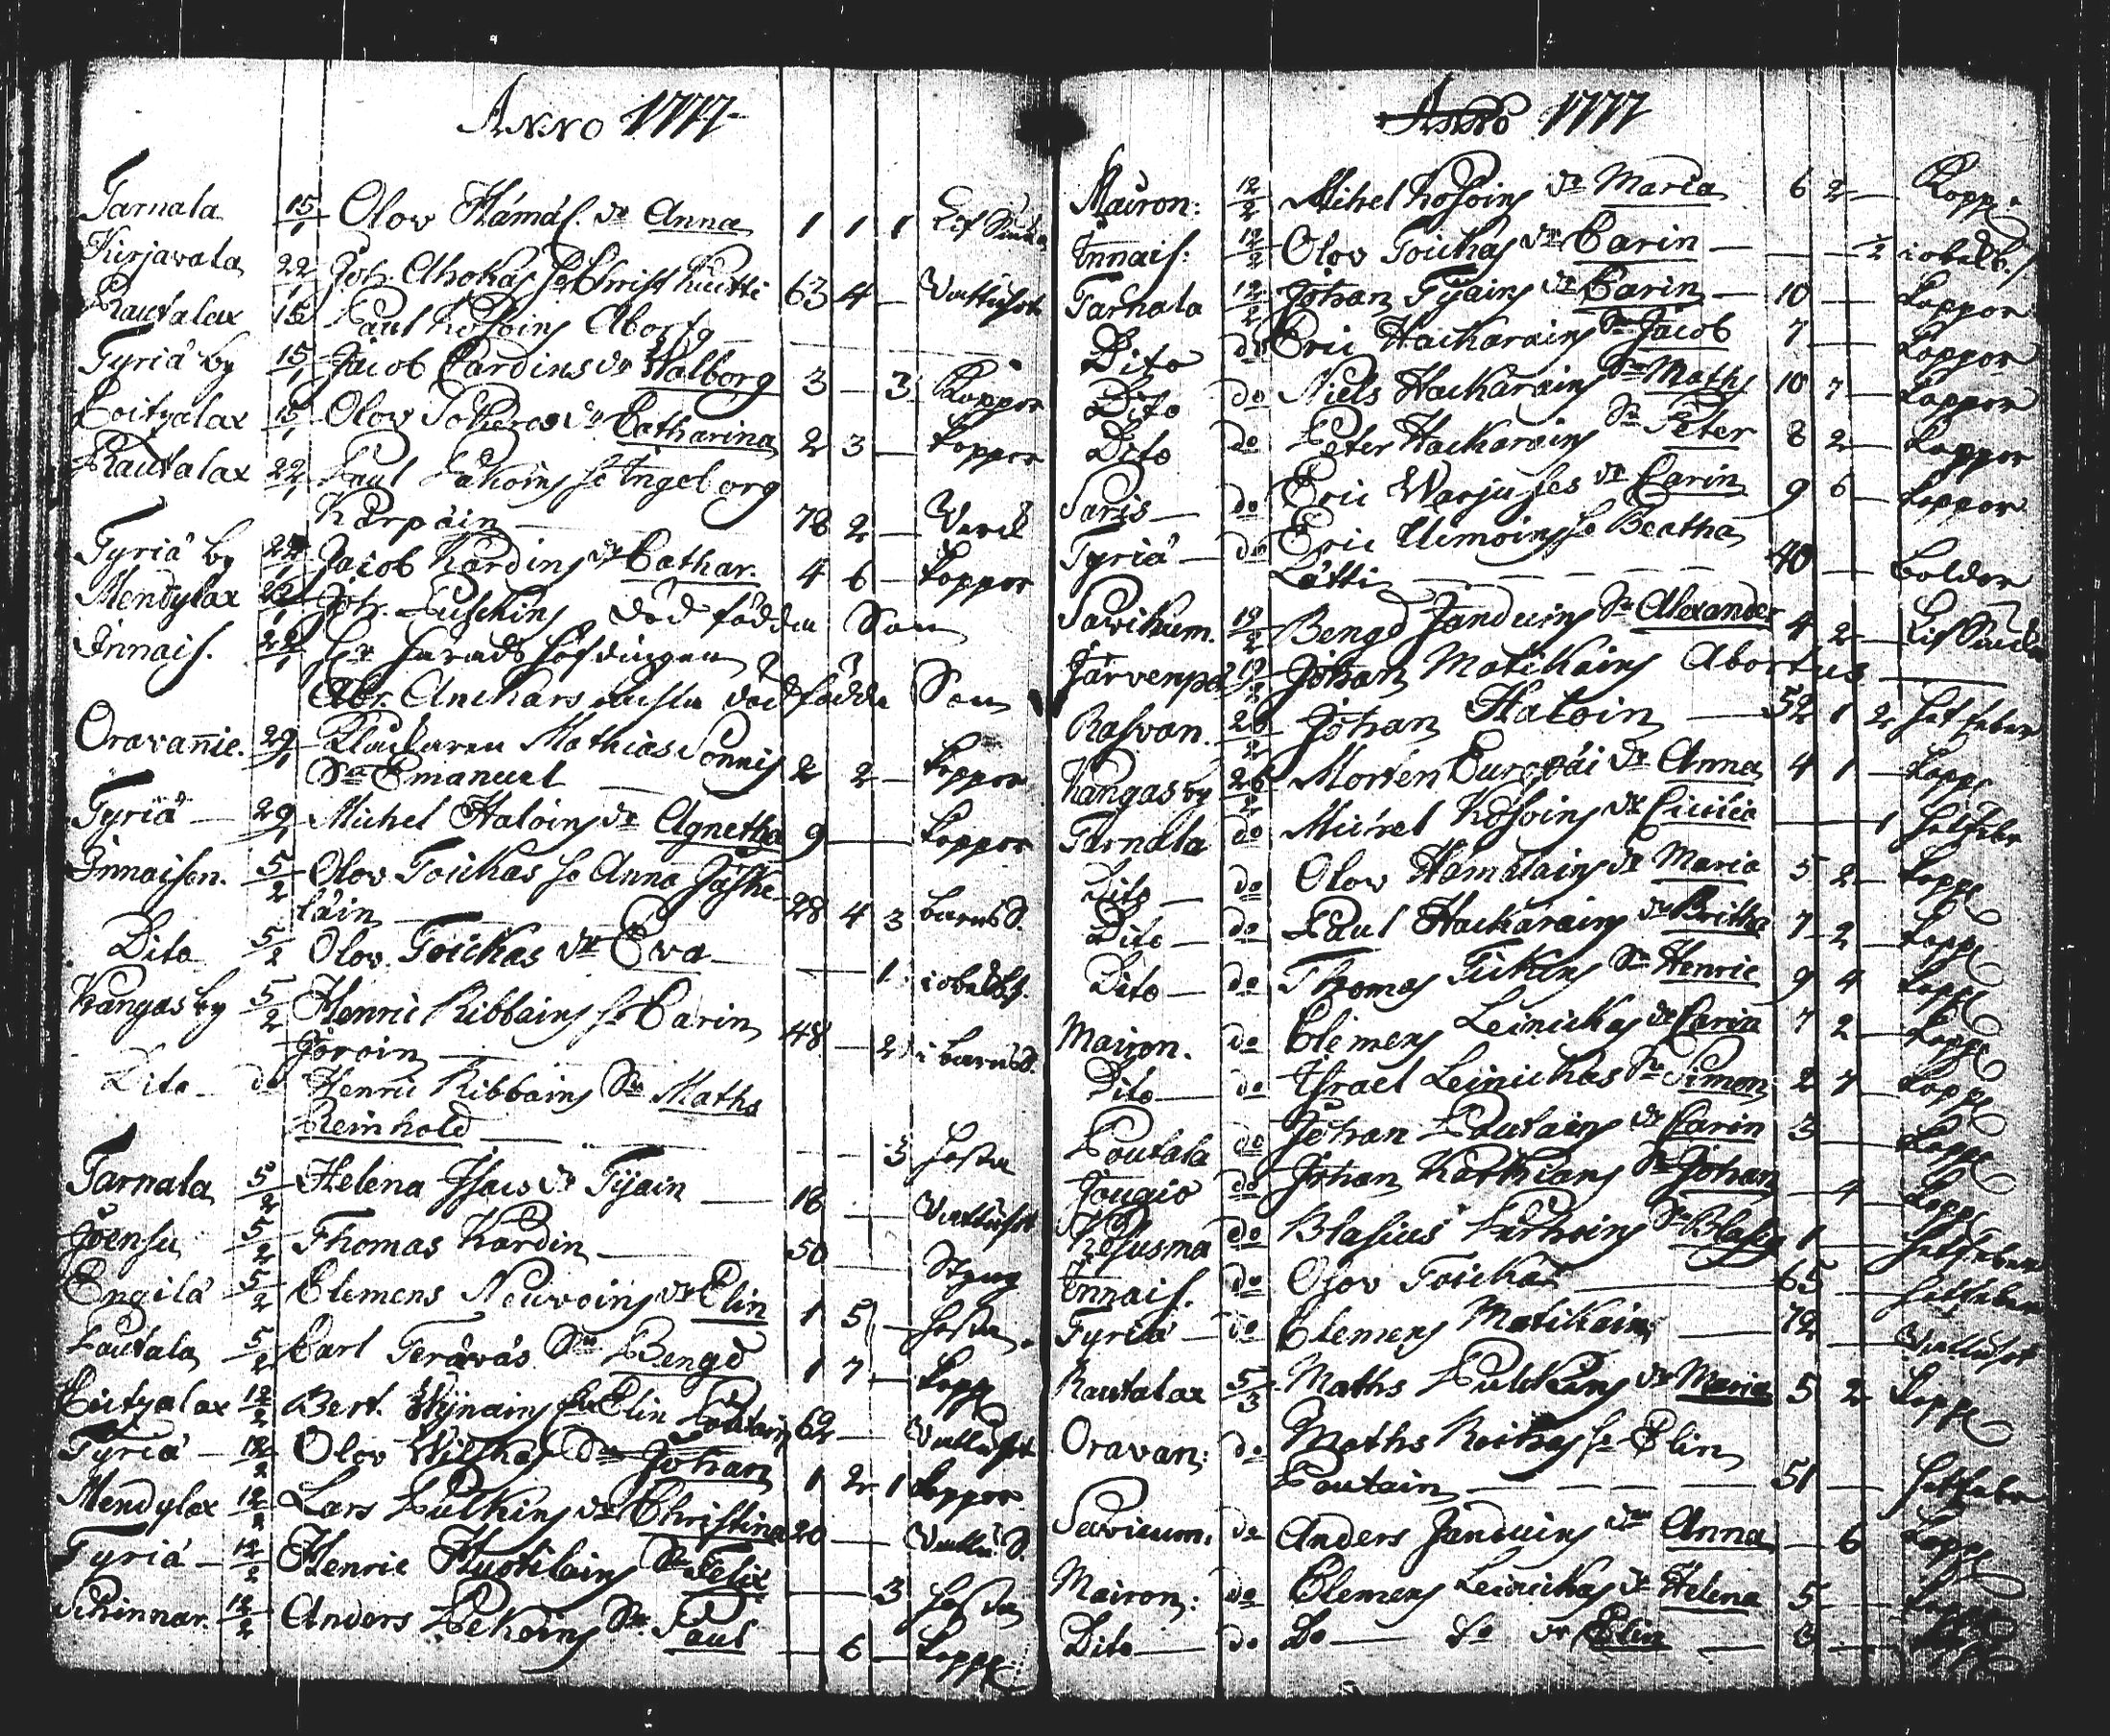 Anno 1777
Tarnala 15/1 Olov Hämäl. dr Anna 1 1 1 Lif Siuka
Kirjavala 22/1 Joh. Ahokas h. Christ. Kutti 63 4 — Vattusot
Rautalax 15 Paul Kosoins Abortg — — —
Tyriä by 15/1 Jacob Cardins dr Walborg 3 — 3 Koppor
Coitzalax 15/1 Olov dr Catharina 2 3 — koppor
Rautalax 22/1 Paul Pakoins h. Ingeborg
Karpain 78 2 —
Tyriä by 22/1 Jacob Kardins dr Cathar. 4 6 — koppor
Mendylax 22/1 Joh. Puschins död födder Son
Innais. 22/1 Hr Härads höfdingen
Abr. Anckars dödfödde Son
Oravanie. 29/1 Klockaren Mathias Sonnis
Sn Emanuel 2 2 — koppor
Tyriä — 29/1 Michel Haloins dr Agnetha 9 — — koppor
Innaisen. 5/2 Olov Toickas h. Anna Jäske-
läin 28 4 3 barns S.
Dito 5/2 Olov Toickas dr Eva — — 1
Kangas by 5/2 Henric Ribbains h. Carin
Joroin 48 — 2 i barns S.
Dito do Henric Ribbains Sn Maths
Reinhold — — 3 hosta
Tarnala 5/2 Helena Isacs dr Tijain — 18 — Vattusot
Joensu 5/2 Thomas Kardin — 50 — Styng
Engilä 5/2 Clemens Neuvoins dr Elin 1 5 — hosta.
Pautala 5/2 Carl Teräväs Sn Bengd 1 7 — kopp
Coitzalax 12/2 Bert. Wijnains h. Elin Poutain 62 — Vattusot
Tyriä — 12/2 Olov Wilskas Sn Johan 1 2 1 koppor
Mendylax 12/2 Lars Pulkins dr Christina 20 — Vattu S.
Tyriä — 12/2 Henric Huotilains Sn Felix — — 3 hosta
Schinnar. 12/2 Anders Pekoins Sn Paul — 6 — kopp
Anno 1777
Mairon: 12/2 Mihel Kosoins dr Maria 6 2 — Kopp.
Innais: 12/2 Olov Toickas dr Carin — — 1/2
Tarnala 12/2 Johan Tijains dr Carin — 10 — koppor
Dito do Eric Hackarains Sn Jacob 7 — koppor
Dito do Niels Hackarains Sn Maths 10 7 — koppor
Dito do Peter Hackarains Sn Peter 8 2 — koppor
Saris — do Eric Warjuses dr Carin 9 6 — koppor
Tyriä — do Eric Uimoins h. Beatha
Lätti — — — 40 — bolder
Savikum. 19/2 Bengd Janduins Sn Alexander 4 2 — Lif Siuka
Järvenpä 19/2 Johan Matikains Abortus —
Rasvan. 26/2 Johan Haloin — 52 1 2 hetfeber
Kangas by 26/2 Morten Europäi dr Anna 4 1 — kopp
Tarnala do Michel Kosoins dr Cicilia — — 1 hetfebr
Dito — do Olov Hämälains dr Maria 5 2 — kopp
Dito — do Paul Hackarains dr Britha 7 2 — kopp
Dito — do Thomas Tickains Sn Henric 9 4 kopp
Mairon. do Clemens Leinickas dr Carin 7 2 — kopp
Dito — do Israel Leinickas Sn Simon 2 7 — kopp
Poutala do Johan Poutains dr Carin 3 — kopp
Jougio do Johan Sn Johan — 4 kopp
Resusma do Blasius Sn Blasius 1 — hetfeber
Innais. do Olov Toickas — 65 — hetfeber
Tyriä — do Clemens Matikains — 72 — Vattusot
Rautalax 5/3 Maths Pulckins dr Maria 5 2 kopp
Oravan: do Maths h. Elin
Poutain — — 51 — hetfebr
Savicum. do Anders Janduins dr Anna — 6 kopp
Mairon: do Clemens Leinickas dr Helena 5 — kopp
Dito — do Do — do dr Elin —